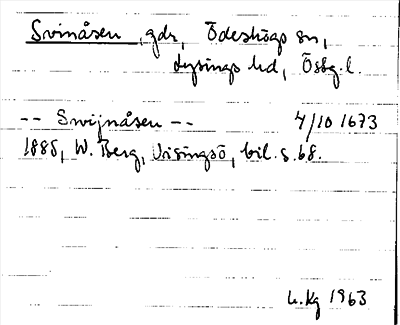 Svinåsen, gdr, Ödeshögs sn,
Lysings hd, Ösbg. l.
-- Swijnåsen -- 4/10 1673
1885, W. Berg, Visingsö, bil. s. 68.
L. Kg 1963